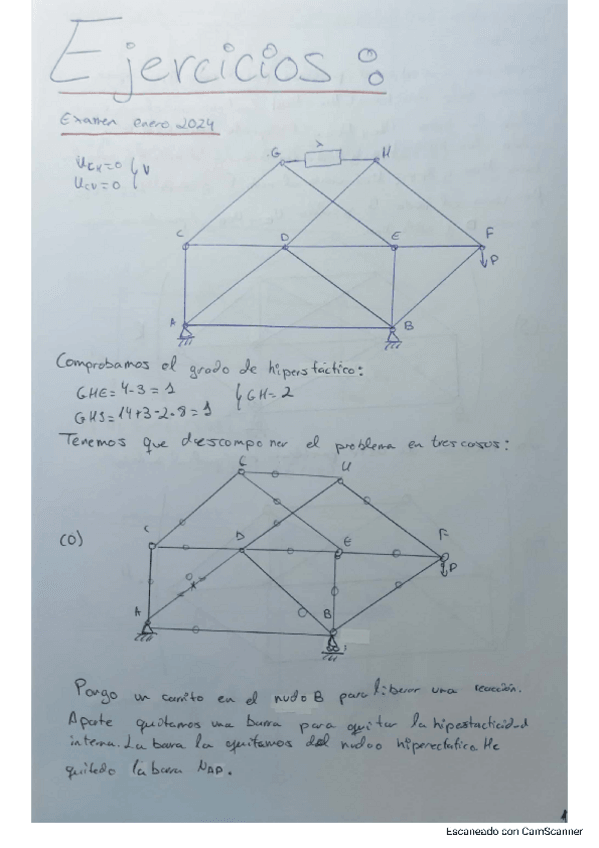 Ejercicios:
Examen enero 2024
UCX=0
UCV=0 V
G λ H
C D E F
P
A B
Comprobamos el grado de hiperstáctico:
GHE= 4-3 = 1
GHS=14+3-2·8=1 GH=2
Tenemos que descomponer el problema en tres casos:
(0)
C D E F
P
A B
Pongo un carrito en el nudo B para liberar una reacción.
Aparte quitamos una barra para quitar la hipestacticidad
interna. La barra la quitamos del nudo hiperestático He
quitado la barra NAD.
1
Escaneado con CamScanner